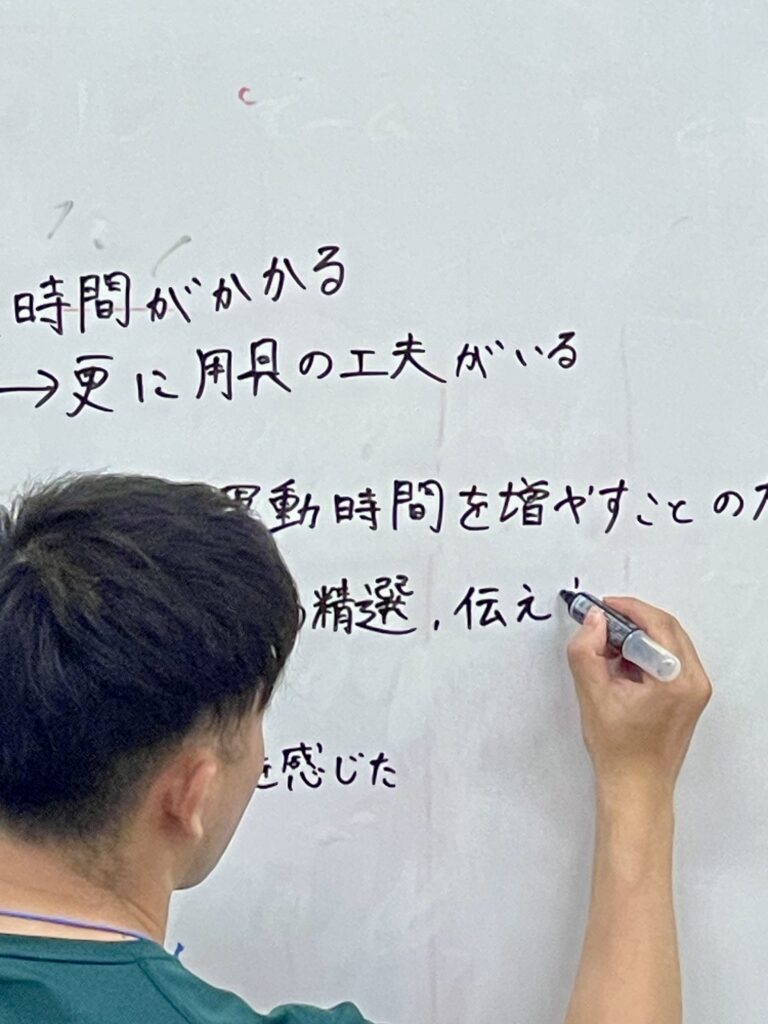 時間がかかる
→更に用具の工夫がいる
運動時間を増やすことの
の精選，伝え
を感じた